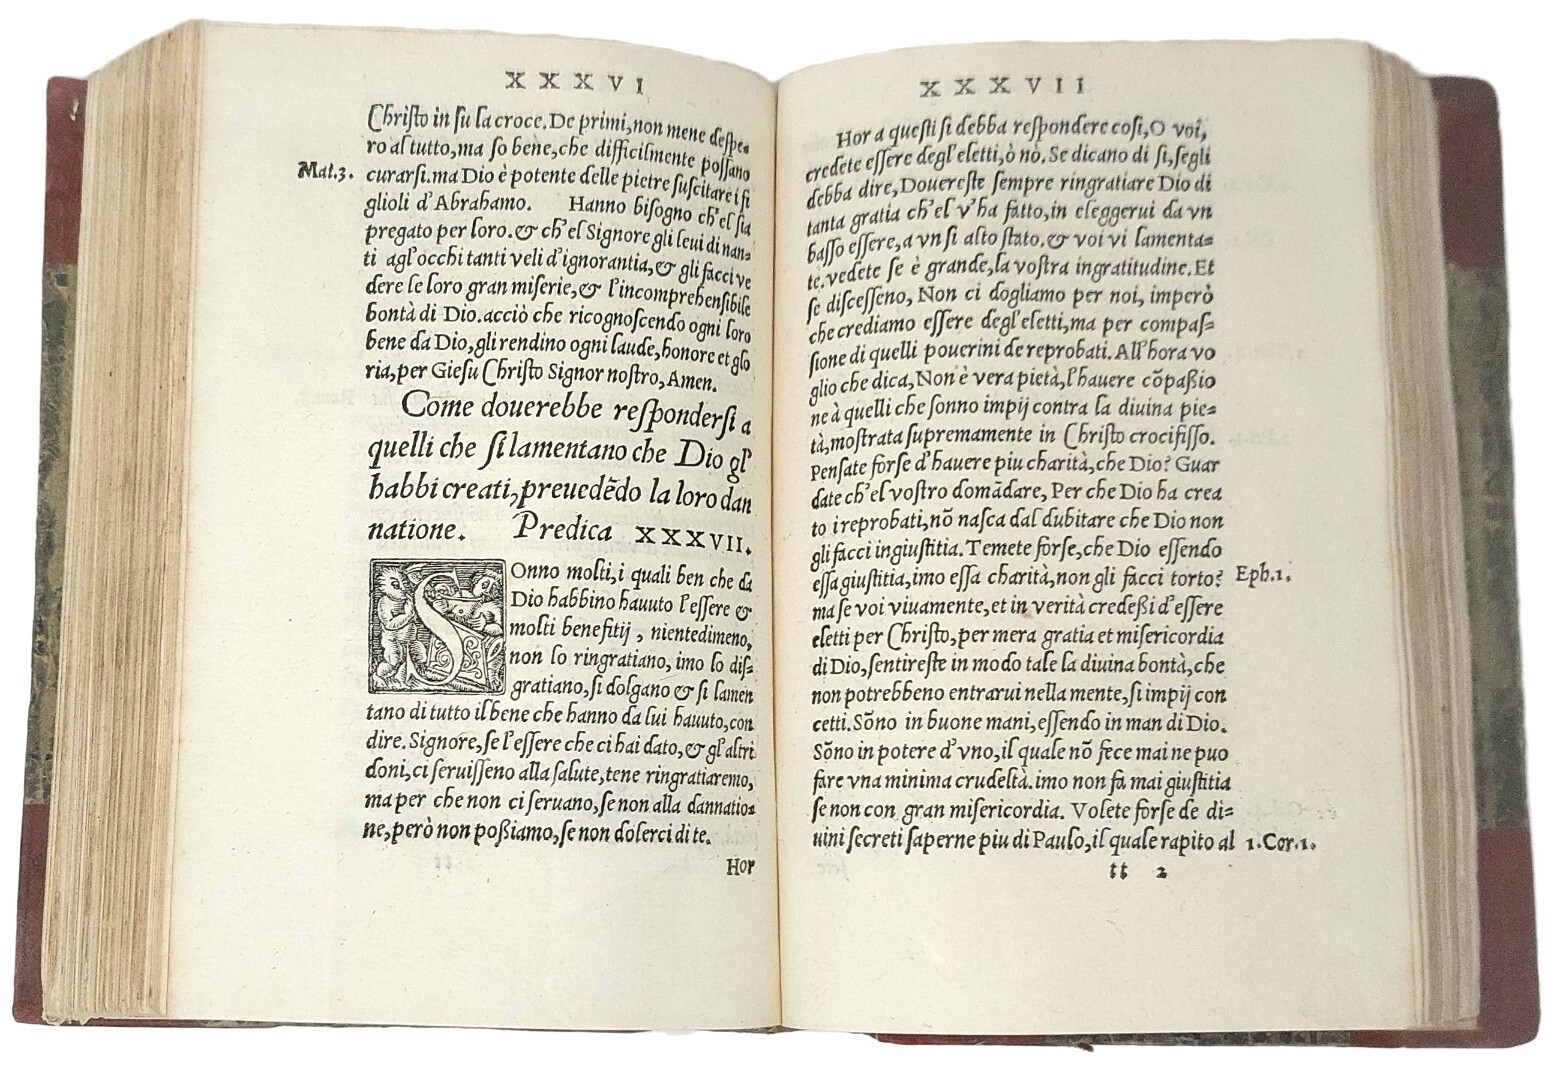 XXXVI
Chriſto in ſu la croce. De primi, non mene deſpe-
ro al tutto, ma ſo bene, che difficilmente poſſano
Mat.3.
curarſi. ma Dio è potente delle pietre ſuſcitare i fi
glioli d'Abrahamo. Hanno biſogno ch'el ſia
pregato per loro. & ch'el Signore gli leui di nan=
ti agl'occhi tanti veli d'ignorantia, & gli facci ve
dere le loro gran miſerie, & l'incomprehenſibile
bontà di Dio. acciò che ricognoſcendo ogni loro
bene da Dio, gli rendino ogni laude, honore et glo
ria, per Gieſu Chriſto Signor noſtro, Amen.
Come douerebbe reſponderſi a
quelli che ſi lamentano che Dio gl'
habbi creati, preuedẽdo la loro dan
natione. Predica XXXVII.
SOnno molti, i quali ben che da
Dio habbino hauuto l'eſſere &
molti benefitij, nientedimeno,
non lo ringratiano, imo lo diſ=
gratiano, ſi dolgano & ſi lamen
tano di tutto il bene che hanno da lui hauuto, con
dire. Signore, ſe l'eſſere che ci hai dato, & gl'altri
doni, ci ſeruiſſeno alla ſalute, tene ringratiaremo,
ma per che non ci ſeruano, ſe non alla dannatio=
ne, però non poßiamo, ſe non dolerci di te.
Hor
XXXVII
Hor a queſti ſi debba reſpondere coſi, O voi,
credete eſſere degl'eletti, ò nò. Se dicano di ſi, ſegli
debba dire, Douereſte ſempre ringratiare Dio di
tanta gratia ch'el v'ha fatto, in eleggerui da vn
baſſo eſſere, a vn ſi alto ſtato. & voi vi lamenta=
te. vedete ſe è grande, la voſtra ingratitudine. Et
ſe diſceſſeno, Non ci dogliamo per noi, imperò
che crediamo eſſere degl'eletti, ma per compaſ=
ſione di quelli pouerini de reprobati. All'hora vo
glio che dica, Non è vera pietà, l'hauere cõpaßio
ne à quelli che ſonno impij contra la diuina pie=
tà, moſtrata ſupremamente in Chriſto crocifiſſo.
Penſate forſe d'hauere piu charità, che Dio? Guar
date ch'el voſtro domãdare, Per che Dio ha crea
to i reprobati, nõ naſca dal dubitare che Dio non
gli facci ingiuſtitia. Temete forſe, che Dio eſſendo
eſſa giuſtitia, imo eſſa charità, non gli facci torto?
Eph.1.
ma ſe voi viuamente, et in verità credeßi d'eſſere
eletti per Chriſto, per mera gratia et miſericordia
di Dio, ſentireſte in modo tale la diuina bontà, che
non potrebbeno entrarui nella mente, ſi impij con
cetti. Sõno in buone mani, eſſendo in man di Dio.
Sõno in potere d'vno, il quale nõ fece mai ne puo
fare vna minima crudeltà. imo non fa mai giuſtitia
ſe non con gran miſericordia. Volete forſe de di=
uini ſecreti ſaperne piu di Paulo, il quale rapito al
1.Cor.1.
tt 2